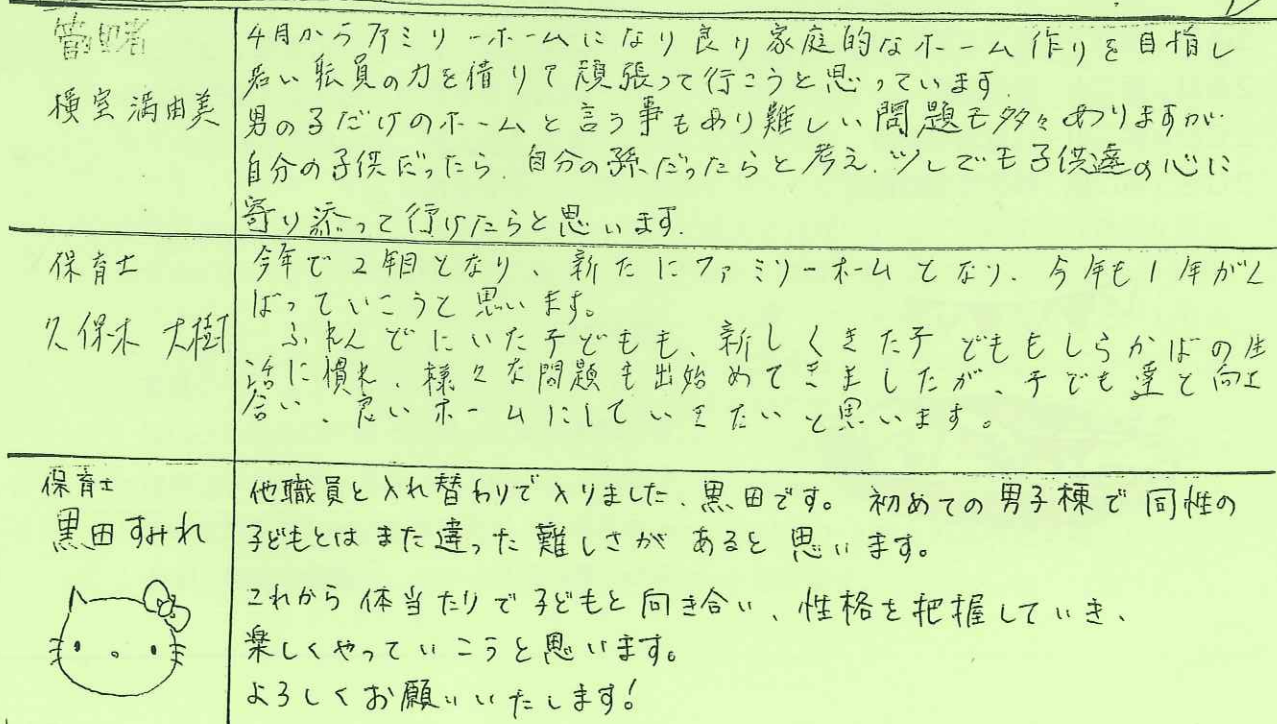 管理者
横室 満由美
4月からファミリーホームになり良り家庭的なホーム作りを目指し
若い転員の力を借りて頑張って行こうと思っています.
男の子だけのホームと言う事もあり難しい問題も多々ありますが
自分の子供だったら、自分の孫だったらと考え、少しでも子供達の心に
寄り添って行けたらと思います.
保育士
久保木 大樹
今年で2年目となり、新たにファミリーホームとなり、今年も1年がん
ばっていこうと思います。
ふれんどにいた子どもも、新しくきた子どももしらかばの生
活に慣れ、様々な問題も出始めてきましたが、子ども達と向き
合い、良いホームにしていきたいと思います。
保育士
黒田すみれ
他職員と入れ替わりで入りました、黒田です。初めての男子棟で同性の
子どもとはまた違った難しさがあると思います。
これから体当たりで子どもと向き合い、性格を把握していき、
楽しくやっていこうと思います。
よろしくお願いいたします!